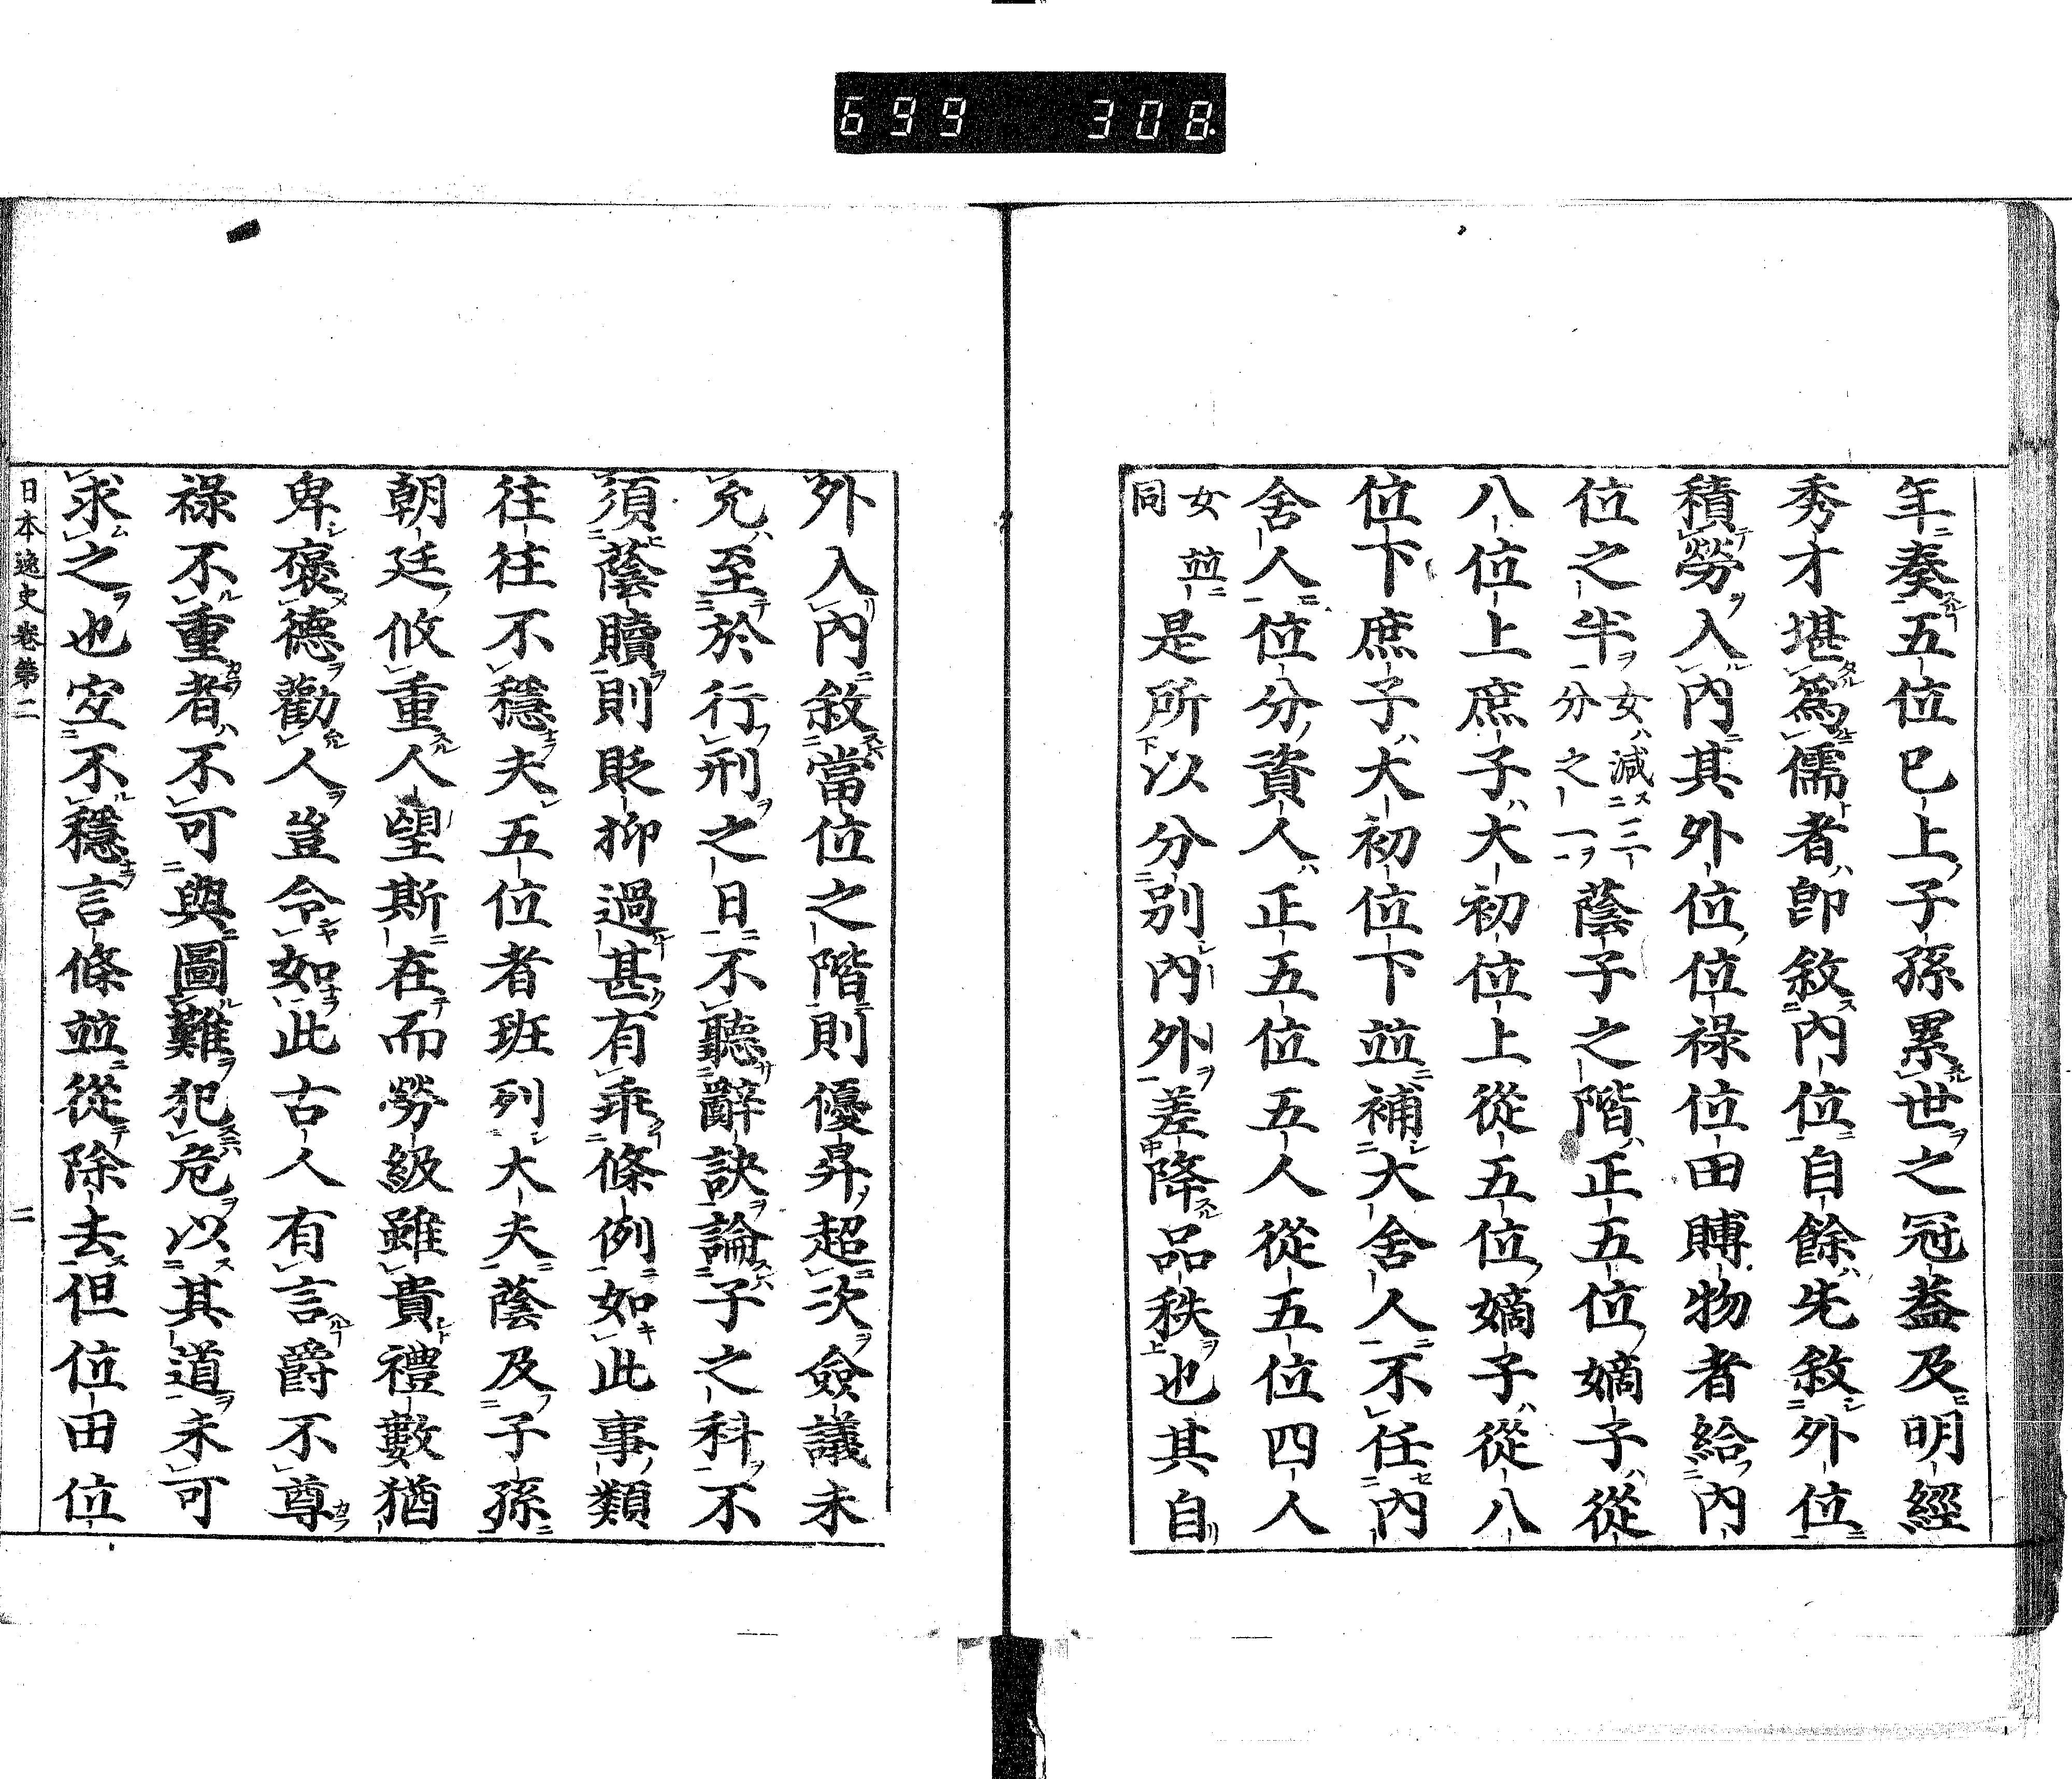 699 308
年奏五位已上子孫累世之冠蓋及明經
秀才堪爲儒者卽敘內位自餘先敘外位
積勞入內其外位位祿位田賻物者給內
位之半女減三分之一蔭子之階正五位嫡子從
八位上庶子大初位上從五位嫡子從八
位下庶子大初位下並補大舍人不任內
舍人位分資人正五位五人從五位四人
女並同是所以分別內外差降品秩也其自
外入內敘當位之階則優昇超次僉議未
允至於行刑之日不聽辭訣論子之科不
須蔭贖則貶抑過甚有乖條例如此事類
往往不穩夫五位者班列大夫蔭及子孫
朝廷攸重人望斯在而勞級雖貴禮數猶
卑褒德勸人豈令如此古人有言爵不尊
祿不重者不可與圖難犯危以其道未可
求之也宜不穩言條並從除去但位田位
日本逸史卷第二 二